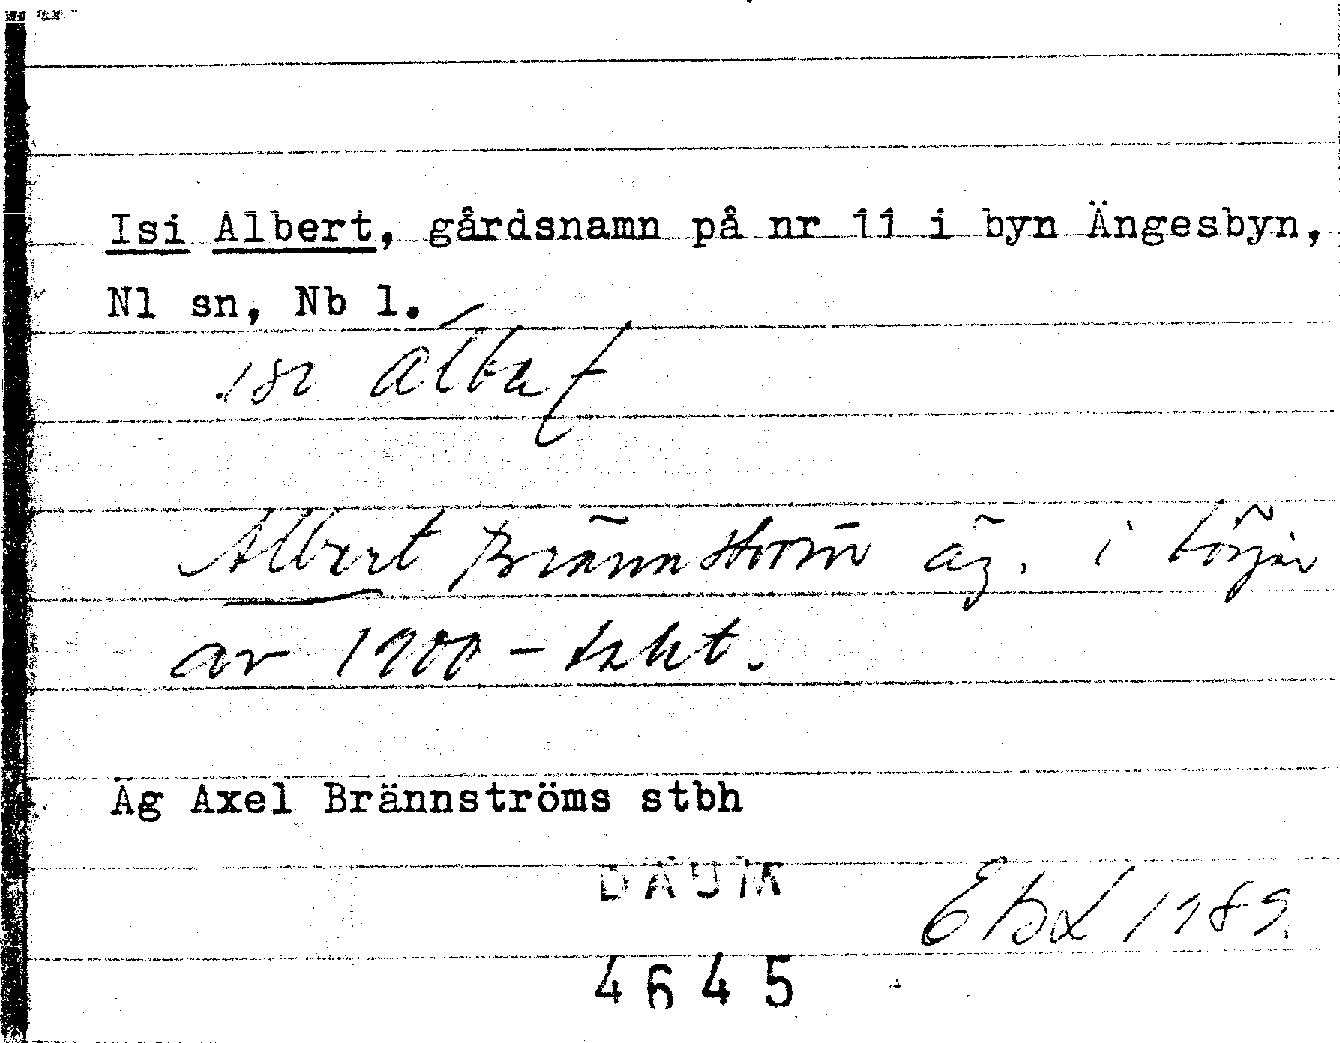 Isi Albert, gårdsnamn på nr 11 i byn Ängesbyn,
Nl sn, Nb l.
isi
Albert Brännström äg. i början
av 1900-talet.
Äg Axel Brännströms stbh
DAUM
EBL 1989.
4645